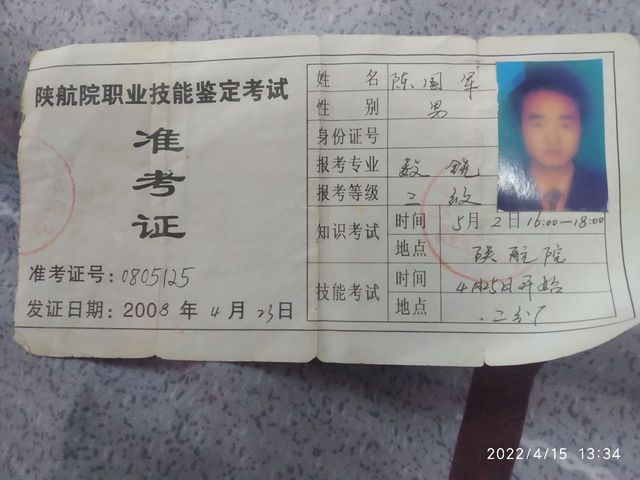 陕航院职业技能鉴定考试
准考证
准考证号：0805125
发证日期：2008 年 4 月 23 日
姓 名 陈国军
性 别 男
身份证号
报考专业 数铣
报考等级 三级
知识考试 时间 5月2日16:00—18:00
地点 陕航院
技能考试 时间 4月25日开始
地点 二分厂
2022/4/15 13:34